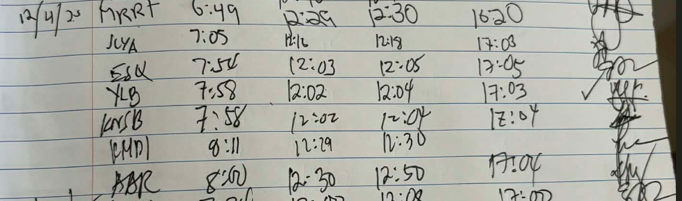 12/4/25 MRRF 6:49 12:29 12:30 16:20
JLYA 7:05 12:16 12:18 17:03
ESQ 7:54 12:03 12:05 17:05
YLB 7:58 12:02 12:04 17:03
KNSB 7:58 12:02 12:04 17:04
KMDI 8:11 12:29 12:30
ABR 8:00 12:30 12:50 17:04
12:08 17:00